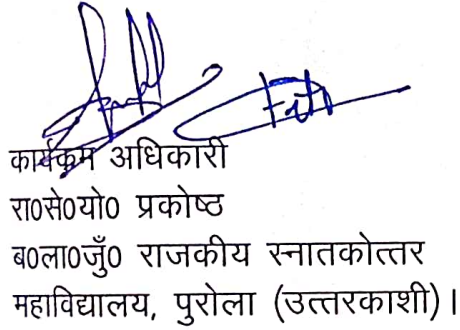 कार्यक्रम अधिकारी
रा0से0यो0 प्रकोष्ठ
ब0ला0जुँ0 राजकीय स्नातकोत्तर
महाविद्यालय, पुरोला (उत्तरकाशी)।